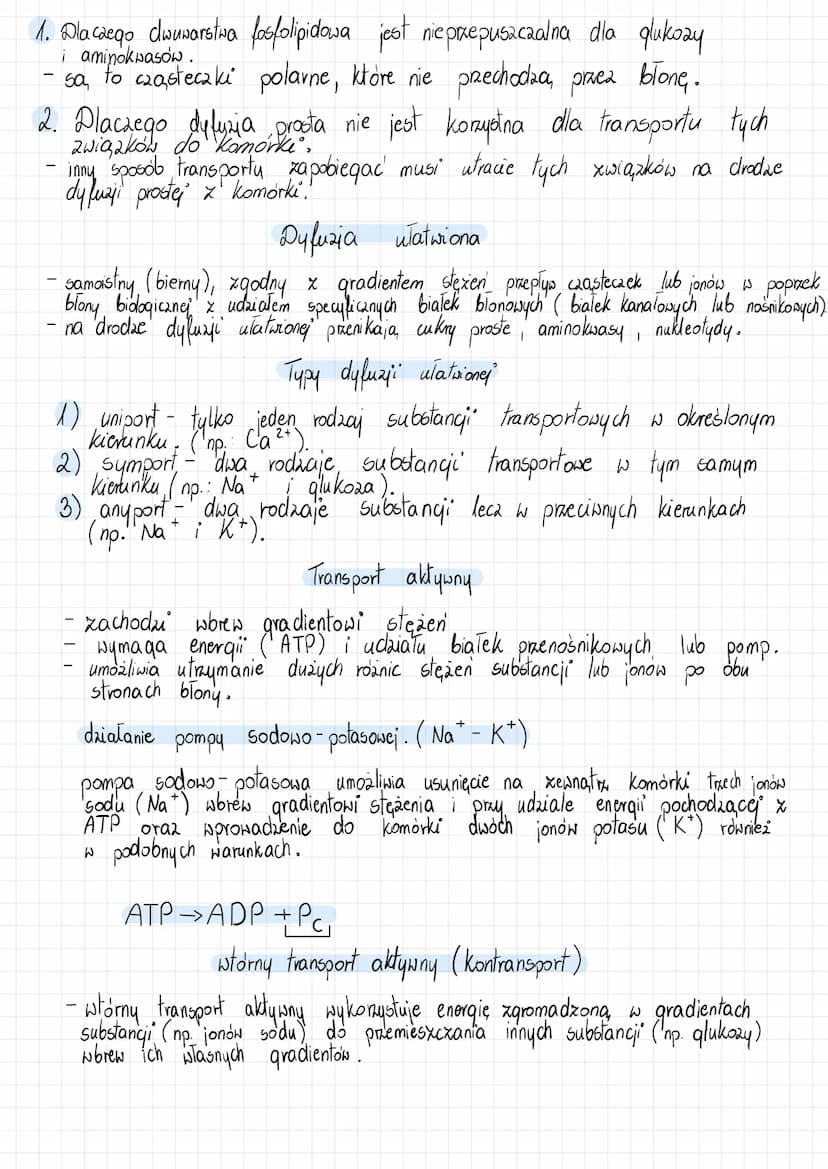 1. Dlaczego dwuwarstwa fosfolipidowa jest nieprzepuszczalna dla glukozy
i aminokwasów.
- są to cząsteczki polarne, które nie przechodzą przez błonę.
2. Dlaczego dyfuzja prosta nie jest korzystna dla transportu tych
związków do komórki.
- inny sposób transportu zapobiegać musi utracie tych związków na drodze
dyfuzji prostej z komórki.
Dyfuzja ułatwiona
- samoistny (bierny), zgodny z gradientem stężeń przepływ cząsteczek lub jonów w poprzek
błony biologicznej z udziałem specyficznych białek błonowych (białek kanałowych lub nośnikowych)
- na drodze dyfuzji ułatwionej przenikają cukry proste, aminokwasy, nukleotydy.
Typy dyfuzji ułatwionej
1) uniport - tylko jeden rodzaj substancji transportowych w określonym
kierunku. (np.: Ca²⁺).
2) symport - dwa rodzaje substancji transportowe w tym samym
kierunku (np.: Na⁺ i glukoza).
3) anyport - dwa rodzaje substancji lecz w przeciwnych kierunkach
(np. Na⁺ i K⁺).
Transport aktywny
- zachodzi wbrew gradientowi stężeń
- wymaga energii (ATP) i udziału białek przenośnikowych lub pomp.
- umożliwia utrzymanie dużych różnic stężeń substancji lub jonów po obu
stronach błony.
działanie pompy sodowo-potasowej. (Na⁺ - K⁺)
pompa sodowo-potasowa umożliwia usunięcie na zewnątrz komórki trzech jonów
sodu (Na⁺) wbrew gradientowi stężenia i przy udziale energii pochodzącej z
ATP oraz wprowadzenie do komórki dwóch jonów potasu (K⁺) również
w podobnych warunkach.
ATP → ADP + Pc
wtórny transport aktywny (kontransport)
- wtórny transport aktywny wykorzystuje energię zgromadzoną w gradientach
substancji (np. jonów sodu) do przemieszczania innych substancji (np. glukozy)
wbrew ich własnych gradientów.